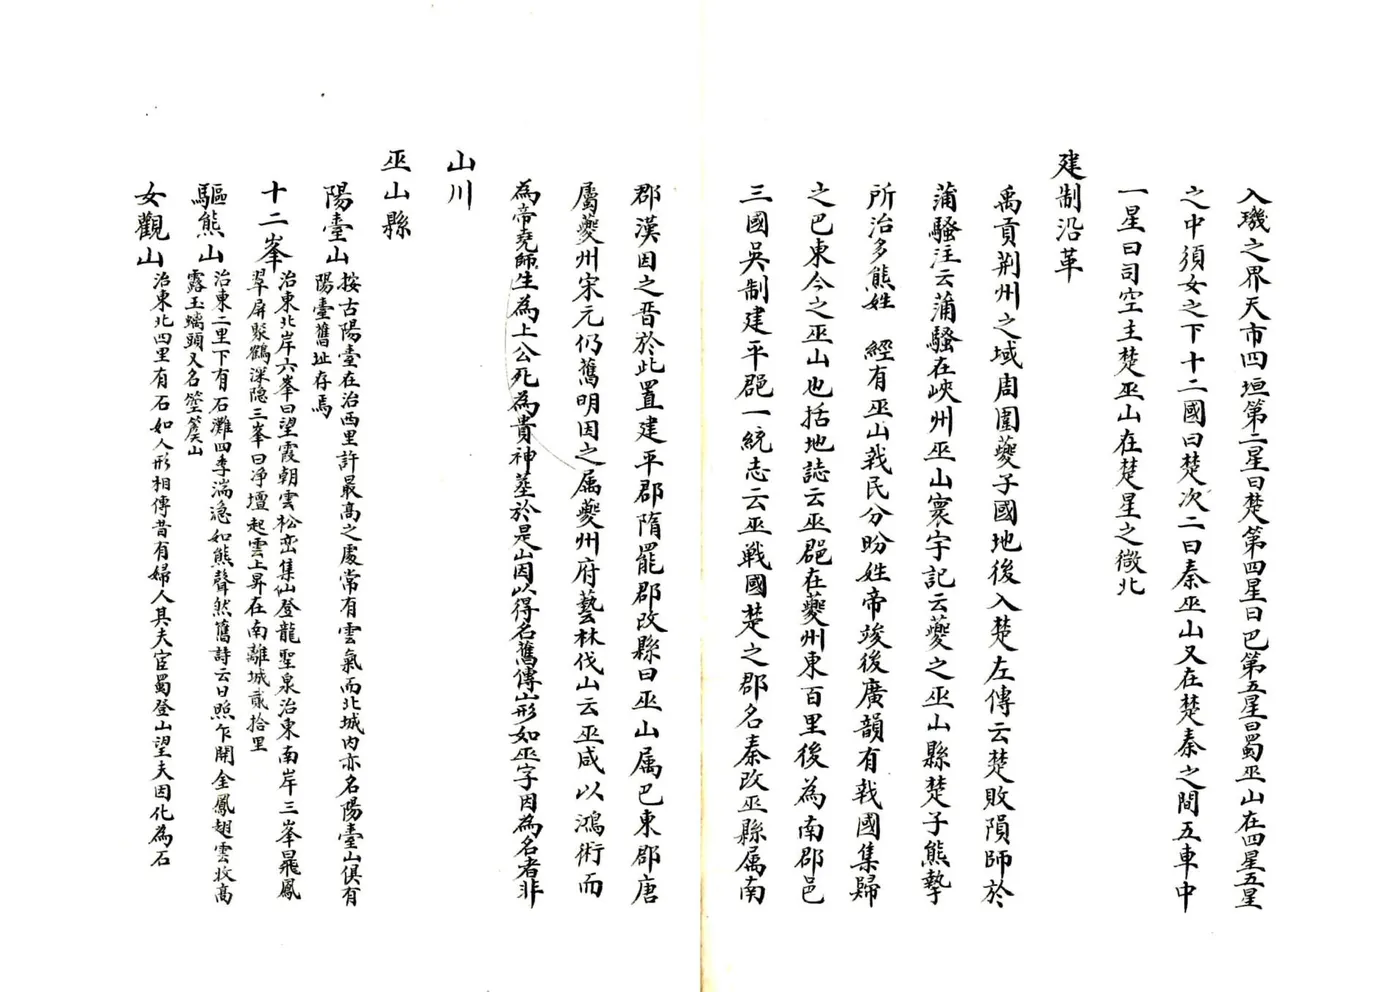 入璣之界天市四垣第二星曰楚第四星曰巴第五星曰蜀巫山在四星五星
之中須女之下十二國曰楚次二曰秦巫山又在楚秦之間五車中
一星曰司空主楚巫山在楚星之徵北
建制沿革
禹貢荆州之域周圍夔子國地後入楚左傳云楚敗隕師於
蒲騷注云蒲騷在峽州巫山寰宇記云夔之巫山縣楚子熊摯
所治多熊姓 經有巫山𢧵民分盼姓帝竣後廣韻有𢧵國集歸
之巴東今之巫山也括地誌云巫郡在夔州東百里後為南郡邑
三國吳制建平郡一統志云巫戰國楚之郡名秦改巫縣属南
郡漢因之晋於此置建平郡隋罷郡改縣曰巫山属巴東郡唐
屬夔州宋元仍舊明因之属夔州府藝林伐山云巫咸以鴻術而
為帝堯師生為上公死為貴神葬於是山因以得名舊傳山形如巫字因為名者非
山川
巫山縣
陽臺山 按古陽臺在治西里許最高之處常有雲氣而北城内亦名陽臺山俱有
陽臺舊址存焉
十二峯 治東北岸六峯曰望霞朝雲松峦集仙登龍聖泉治東南岸三峯曰飛鳳
翠屏聚鶴深隐三峯曰净壇起雲上昇在南離城貳拾里
驅熊山 治東二里下有石灘四季湍急如熊聲然舊詩云日照乍開金鳳翅雲收高
露玉蟠頭又名箜篌山
女觀山 治東北四里有石如人形相傳昔有婦人其夫宦蜀登山望夫因化為石